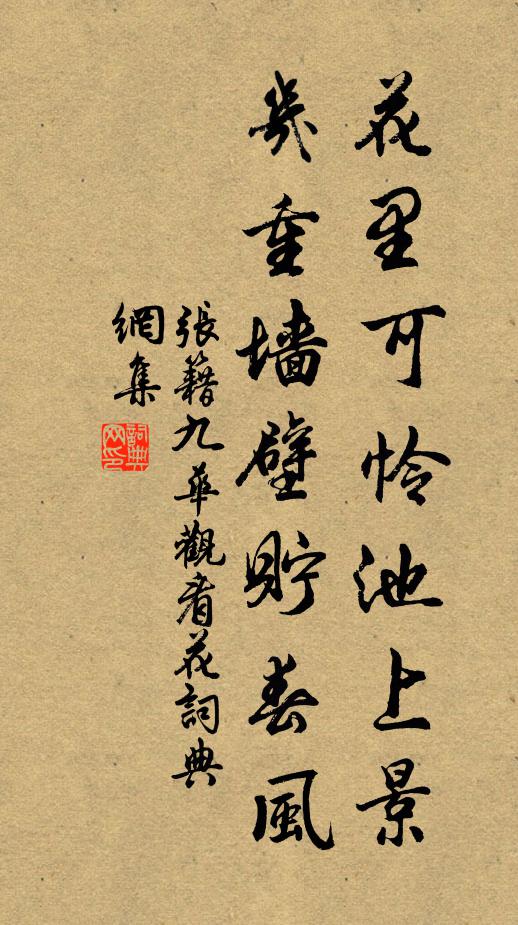 花里可怜池上景
幾重墙壁貯春風
張籍九華觀看花詞典
網集
詞典網印